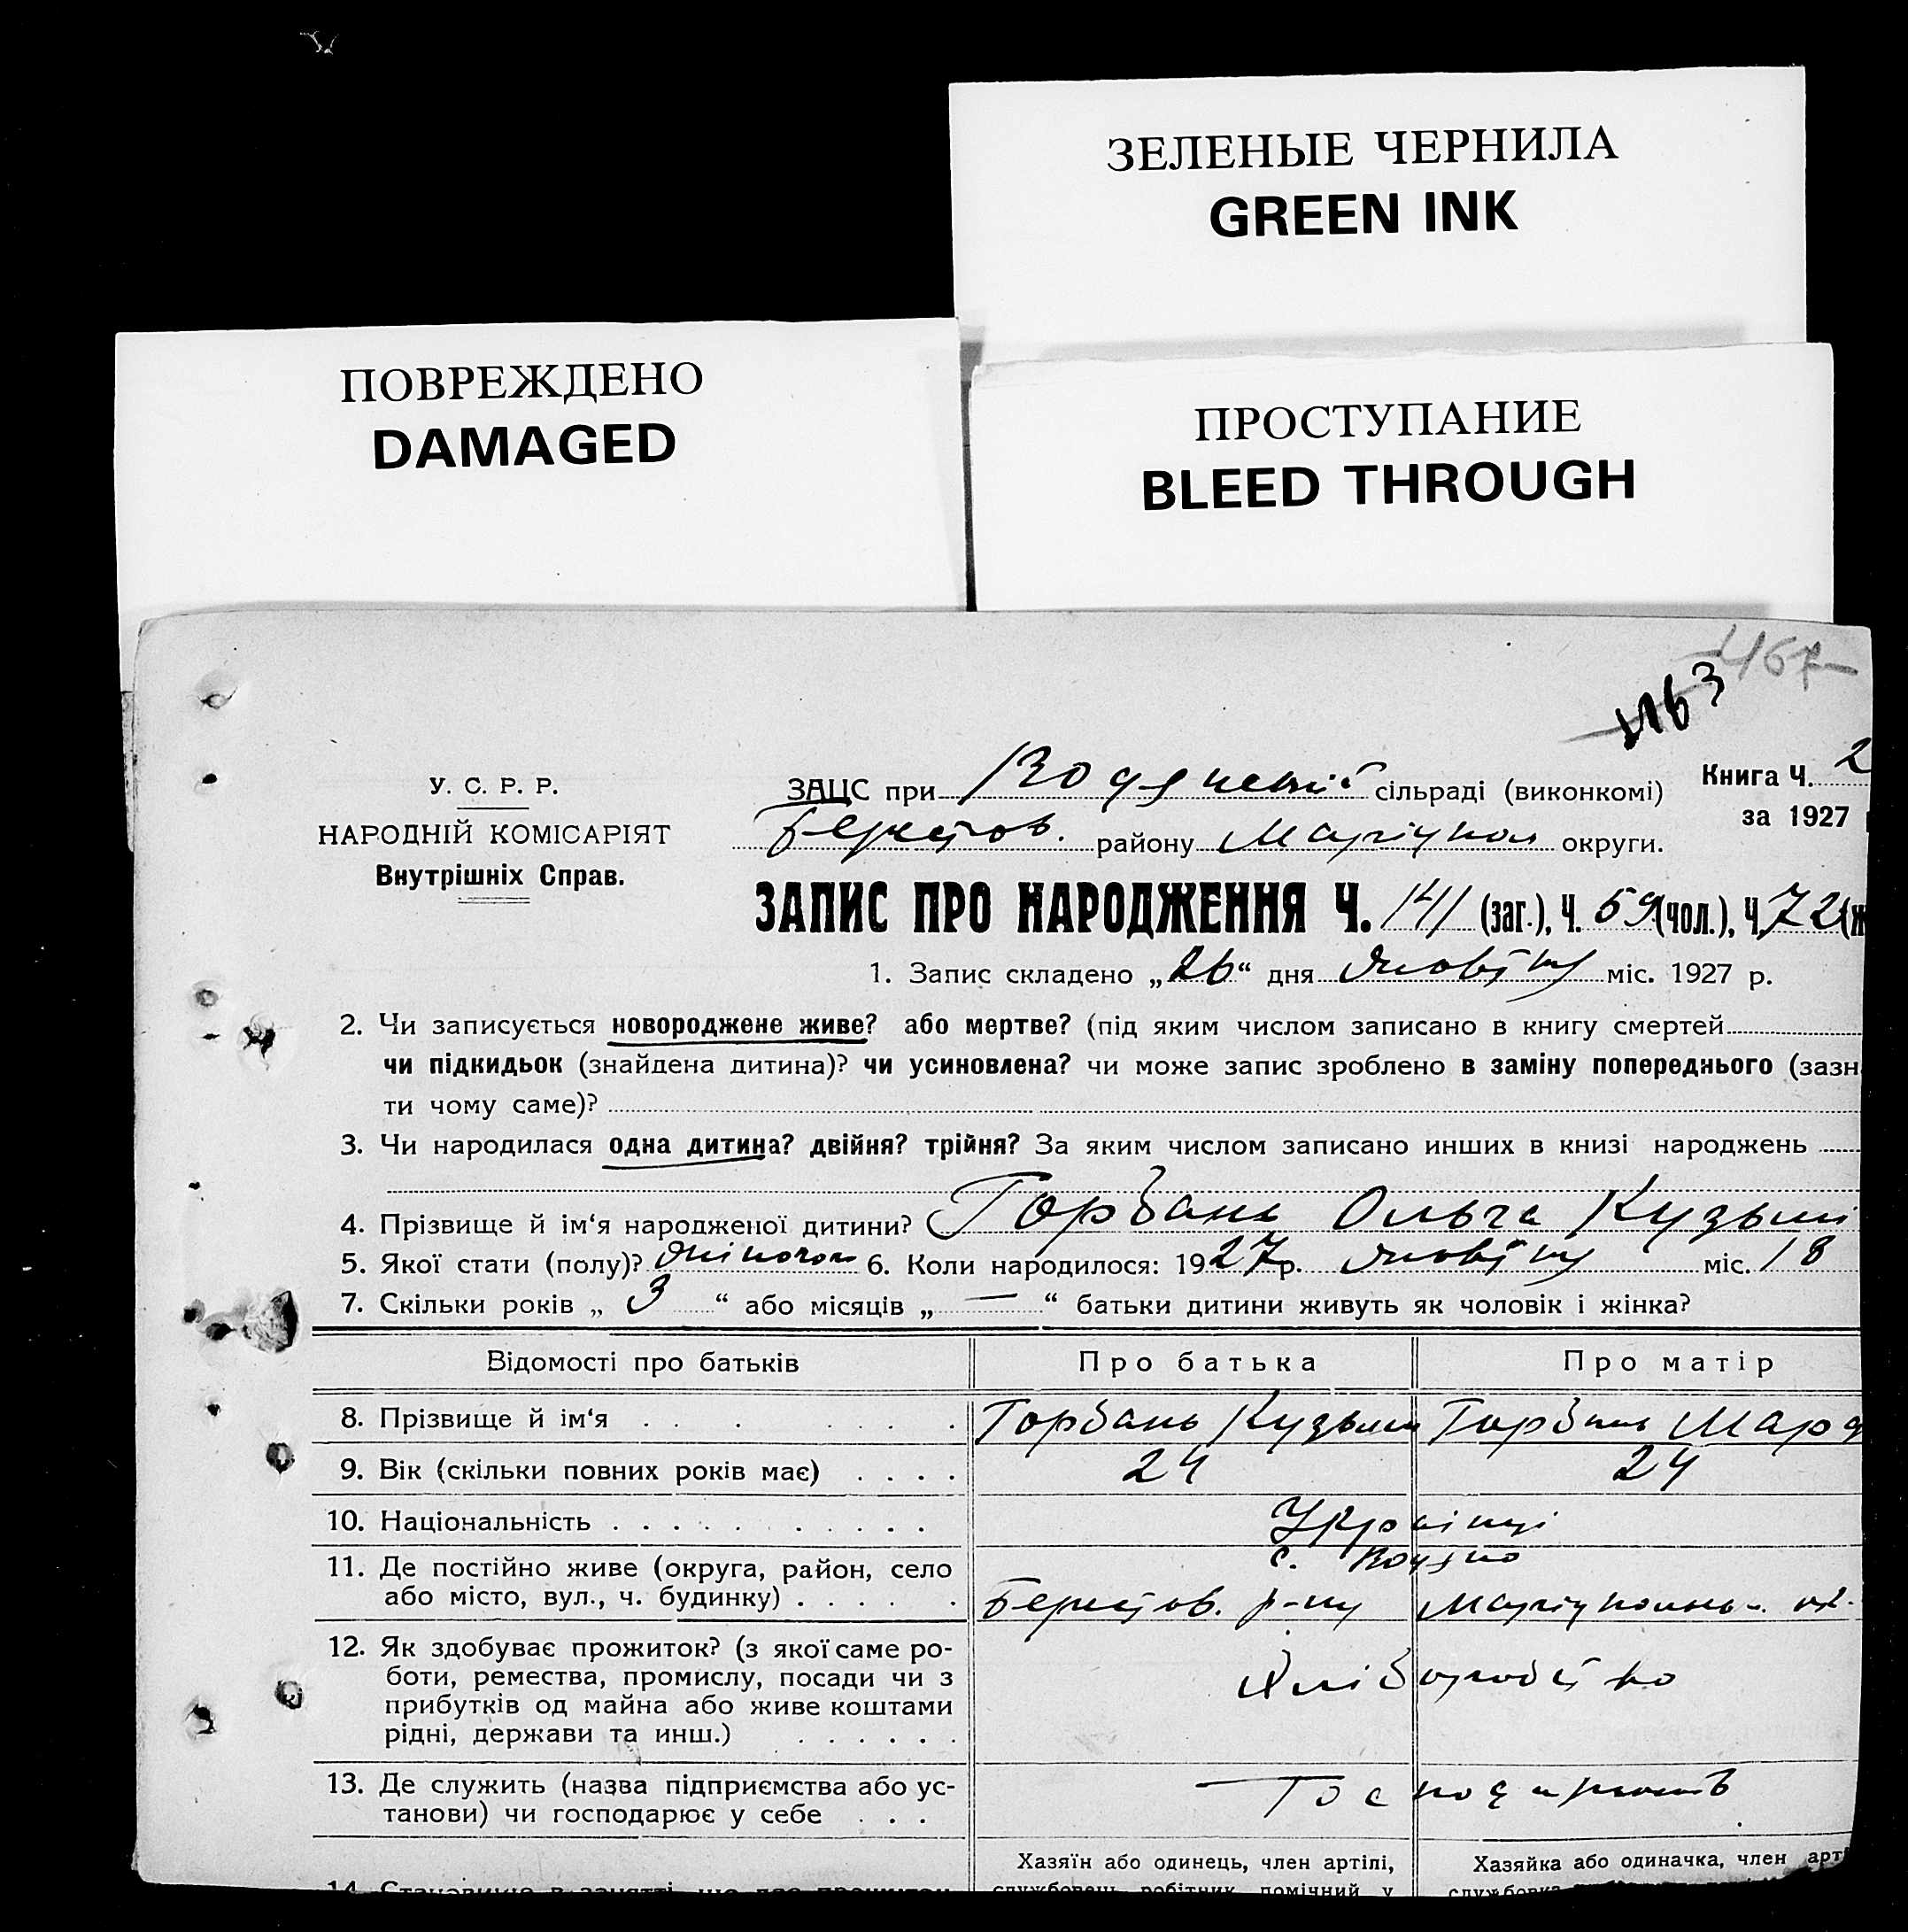 ЗЕЛЕНЫЕ ЧЕРНИЛА
GREEN INK
ПОВРЕЖДЕНО
DAMAGED
ПРОСТУПАНИЕ
BLEED THROUGH
У. С. Р. Р.
НАРОДНІЙ КОМІСАРІЯТ
Внутрішніх Справ.
Книга Ч. 2
за 1927
ЗАЦС при сільраді (виконкомі)
Берестов. району Маріупол округи.
ЗАПИС ПРО НАРОДЖЕННЯ Ч. 141 (заг.), Ч. 69 (чол.), Ч. 72 (ж
1. Запис складено „26“ дня жовтня міс. 1927 р.
2. Чи записується новороджене живе? або мертве? (під яким числом записано в книгу смертей
чи підкидьок (знайдена дитина)? чи усиновлена? чи може запис зроблено в заміну попереднього (зазн
ти чому саме)?
3. Чи народилася одна дитина? двійня? трійня? За яким числом записано инших в книзі народжень
4. Прізвище й ім‘я народженої дитини? Горбань Ольга Кузьмі
5. Якої стати (полу)? жіночої 6. Коли народилося: 1927 р. жовтня міс. 18
7. Скільки років „ 3 “ або місяців „ — “ батьки дитини живуть як чоловік і жінка?
Відомості про батьків Про батька Про матір
8. Прізвище й ім‘я . . . . . . . Горбань Кузьма Горбань Мар
9. Вік (скільки повних років має) . . . . 24 24
10. Національність . . . . . . . . . . . Українці
11. Де постійно живе (округа, район, село с. Водяно
або місто, вул., ч. будинку) . . . . . . Берестов. р-ну Маріупольськ. окр.
12. Як здобуває прожиток? (з якої саме ро-
боти, ремества, промислу, посади чи з Хліборобство
прибутків од майна або живе коштами
рідні, держави та инш.) . . . . . .
13. Де служить (назва підприємства або ус-
танови) чи господарює у себе . . . Господарють
Хазяїн або одинець, член артілі, Хазяйка або одиначка, член арт
14. Становище в занятті, що дає прожиток.
службовець, робітник, помічний у